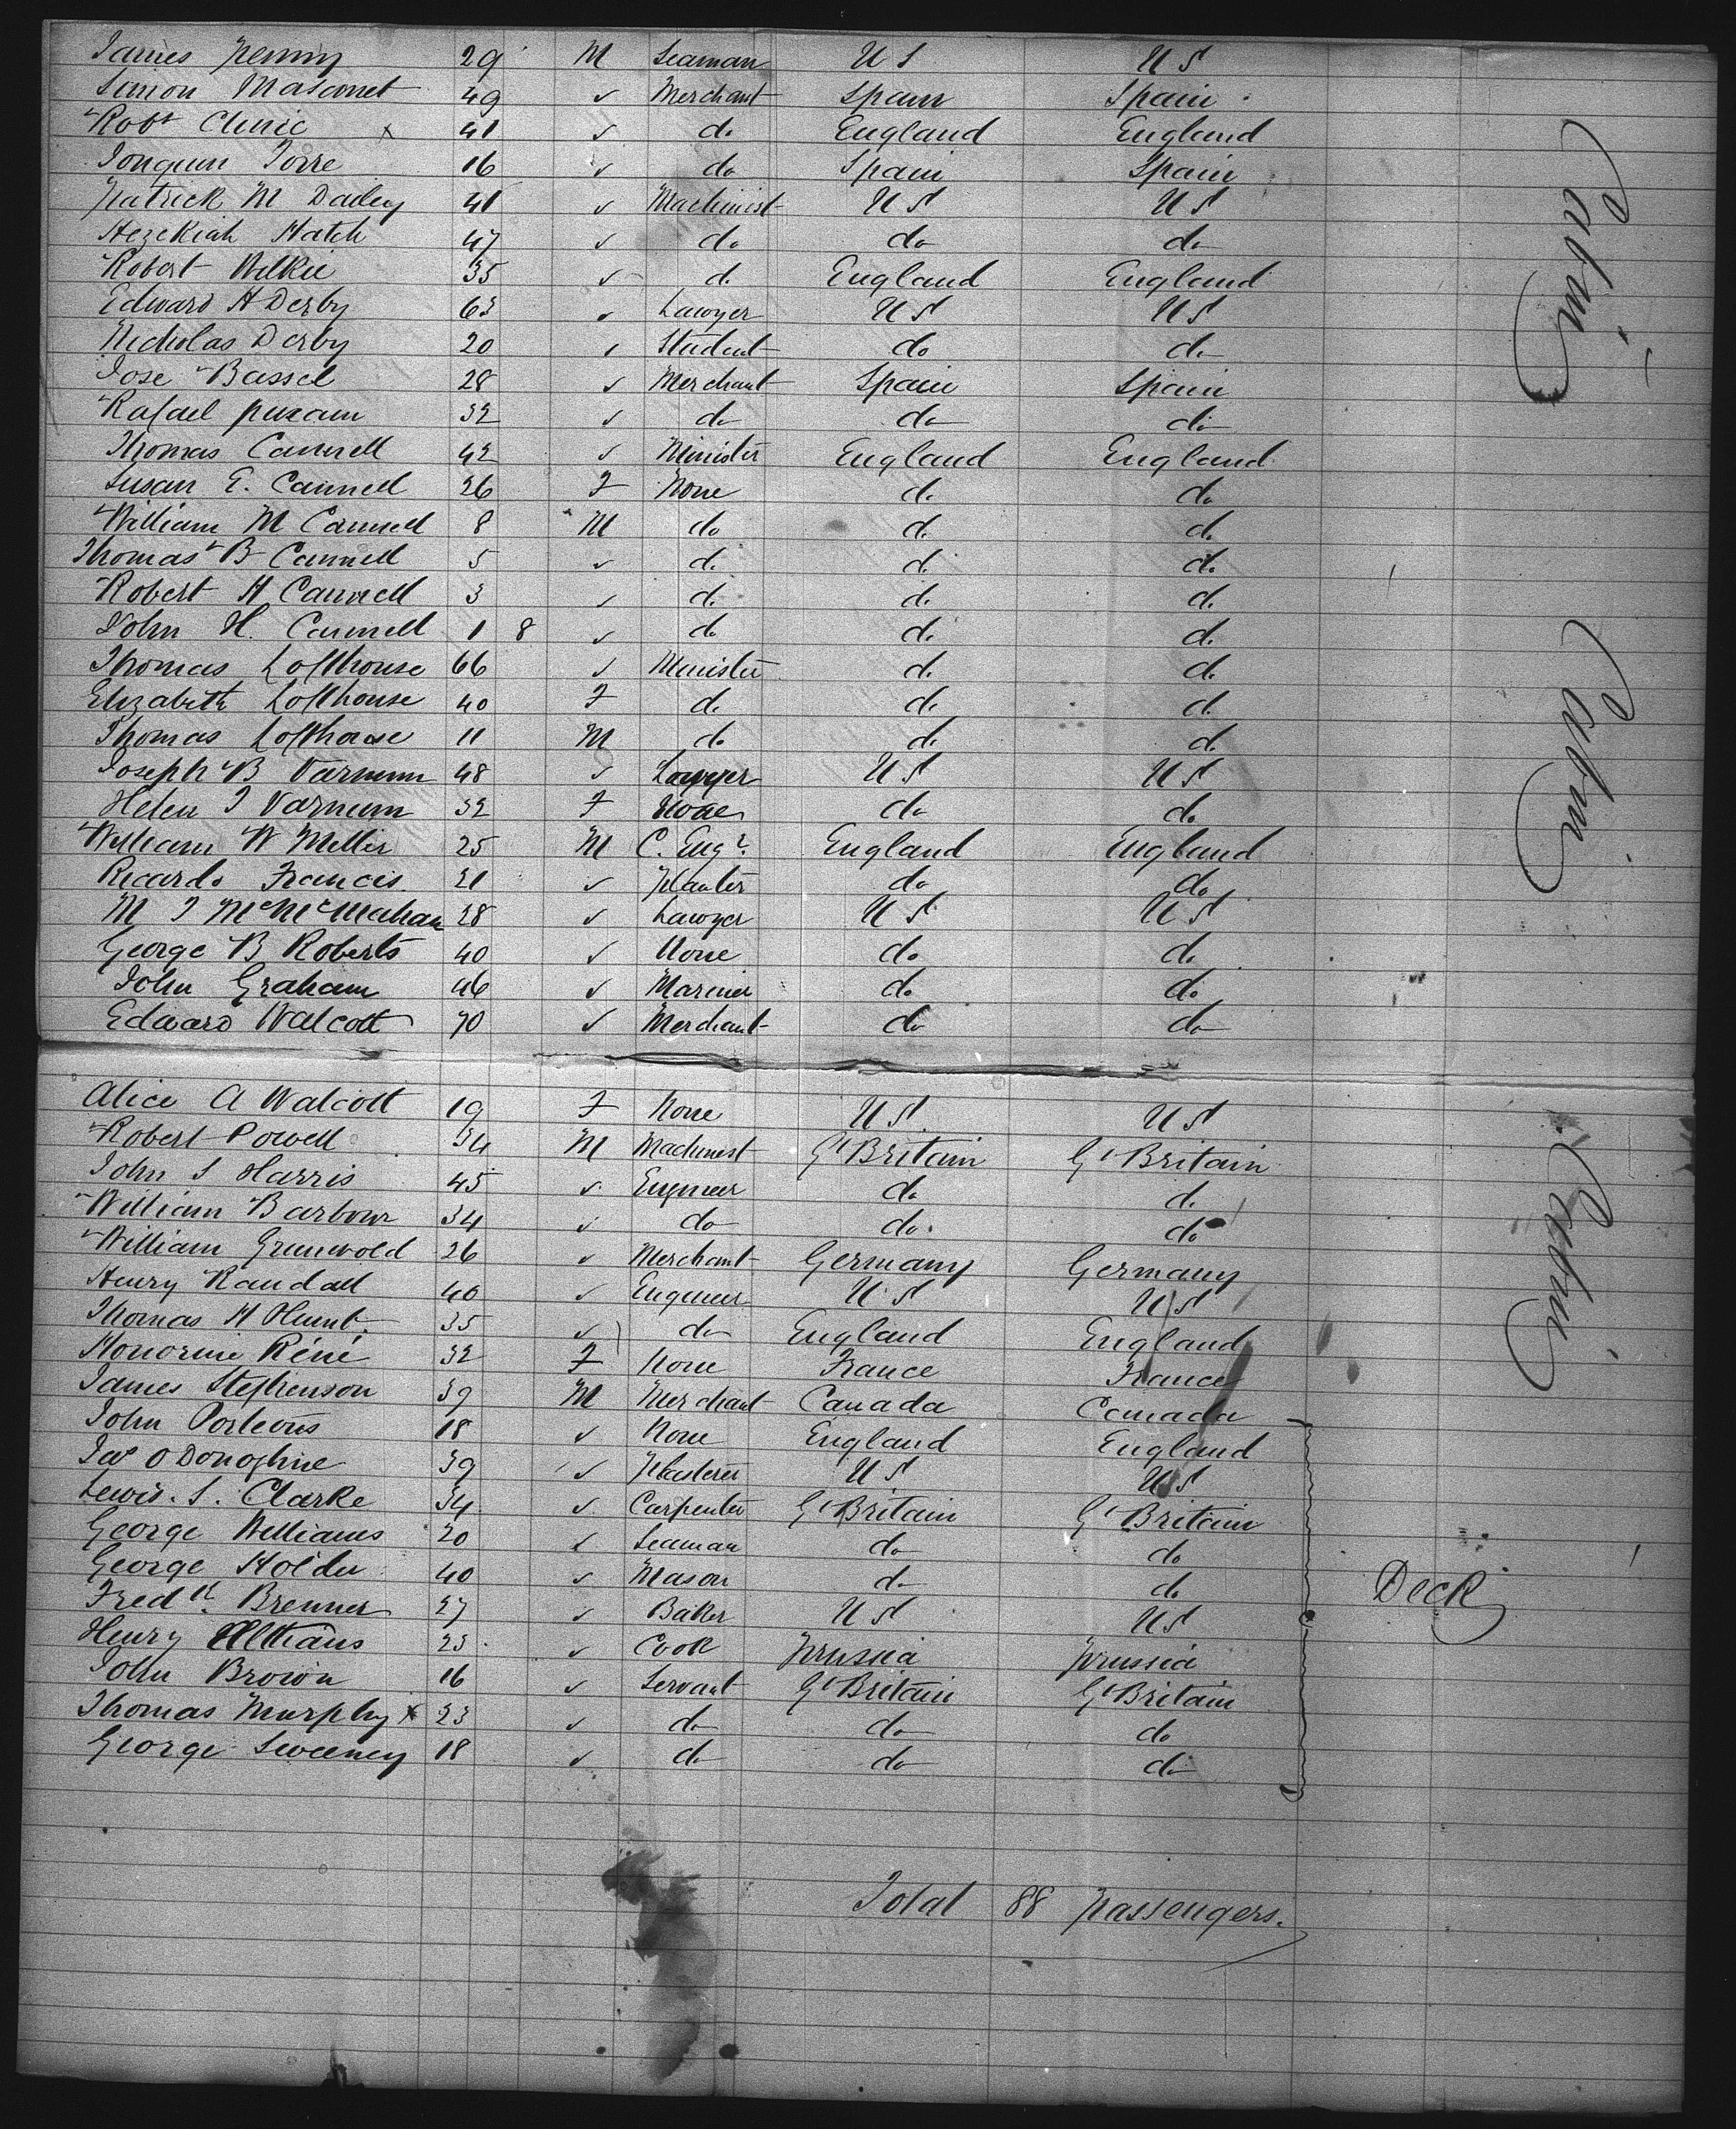 James Penny 29 M Seaman US US
Simon Masonet 49 ✓ Merchant Spain Spain
Robt Clunie x 41 ✓ do England England
Jonquin Torre 16 ✓ do Spain Spain
Patrick M Dailey 41 ✓ Machinist US US
Hezekiah Hatch 47 ✓ do do do
Robert Wilkie 35 ✓ do England England
Edward H Derby 63 ✓ Lawyer US US
Nicholas Derby 20 ✓ Student do do
Jose Bassel 28 ✓ Merchant Spain Spain
Rafael 32 ✓ do do do
Thomas Cannell 42 ✓ Minister England England
Susan E. Cannell 26 F None do do
William M Cannell 8 M do do do
Thomas B Cannell 5 ✓ do do do
Robert H Cannell 3 ✓ do do do
John H. Cannell 1 8 ✓ do do do
Thomas Lofthouse 66 ✓ Minister do do
Elizabeth Lofthouse 40 F do do do
Thomas Lofthouse 11 M do do do
Joseph B Varnum 48 ✓ Lawyer US US
Helen I Varnum 32 F None do do
William W Millis 25 M C. Engr. England England
Ricardo Francis 21 ✓ Planter do do
M I McMcMahan 28 ✓ Lawyer US US
George B Roberts 40 ✓ None do do
John Graham 46 ✓ Mariner do do
Edward Walcott 70 ✓ Merchant do do
Alice A Walcott 19 F None US US
Robert Powell 34 M Machinest Gt Britain Gt Britain
John S Harris 45 ✓ Engineer do do
William Barbour 34 ✓ do do do
William Grunwold 26 ✓ Merchant Germany Germany
Henry Randall 40 ✓ Engineer US US
Thomas H Hunt 35 ✓ do England England
Honorine Réné 32 F None France France
James Stephenson 39 M Merchant Canada Canada
John Porteous 18 ✓ None England England
Jas ODonoghue 39 ✓ Plasterer US US
Lewis. S. Clarke 34 ✓ Carpenter Gt Britain Gt Britain
George Williams 20 ✓ Seaman do do
George Holder 40 ✓ Mason do do
Fredk. Brenner 27 ✓ Baker US US
Henry Althaus 23 ✓ Cook Prussia Prussia
John Brown 16 ✓ Servant Gt Britain Gt Britain
Thomas Murphy x 23 ✓ do do do
George Sweeney 18 ✓ do do do
Total 88 passengers.
Cabin
Cabin
Cabin
Deck